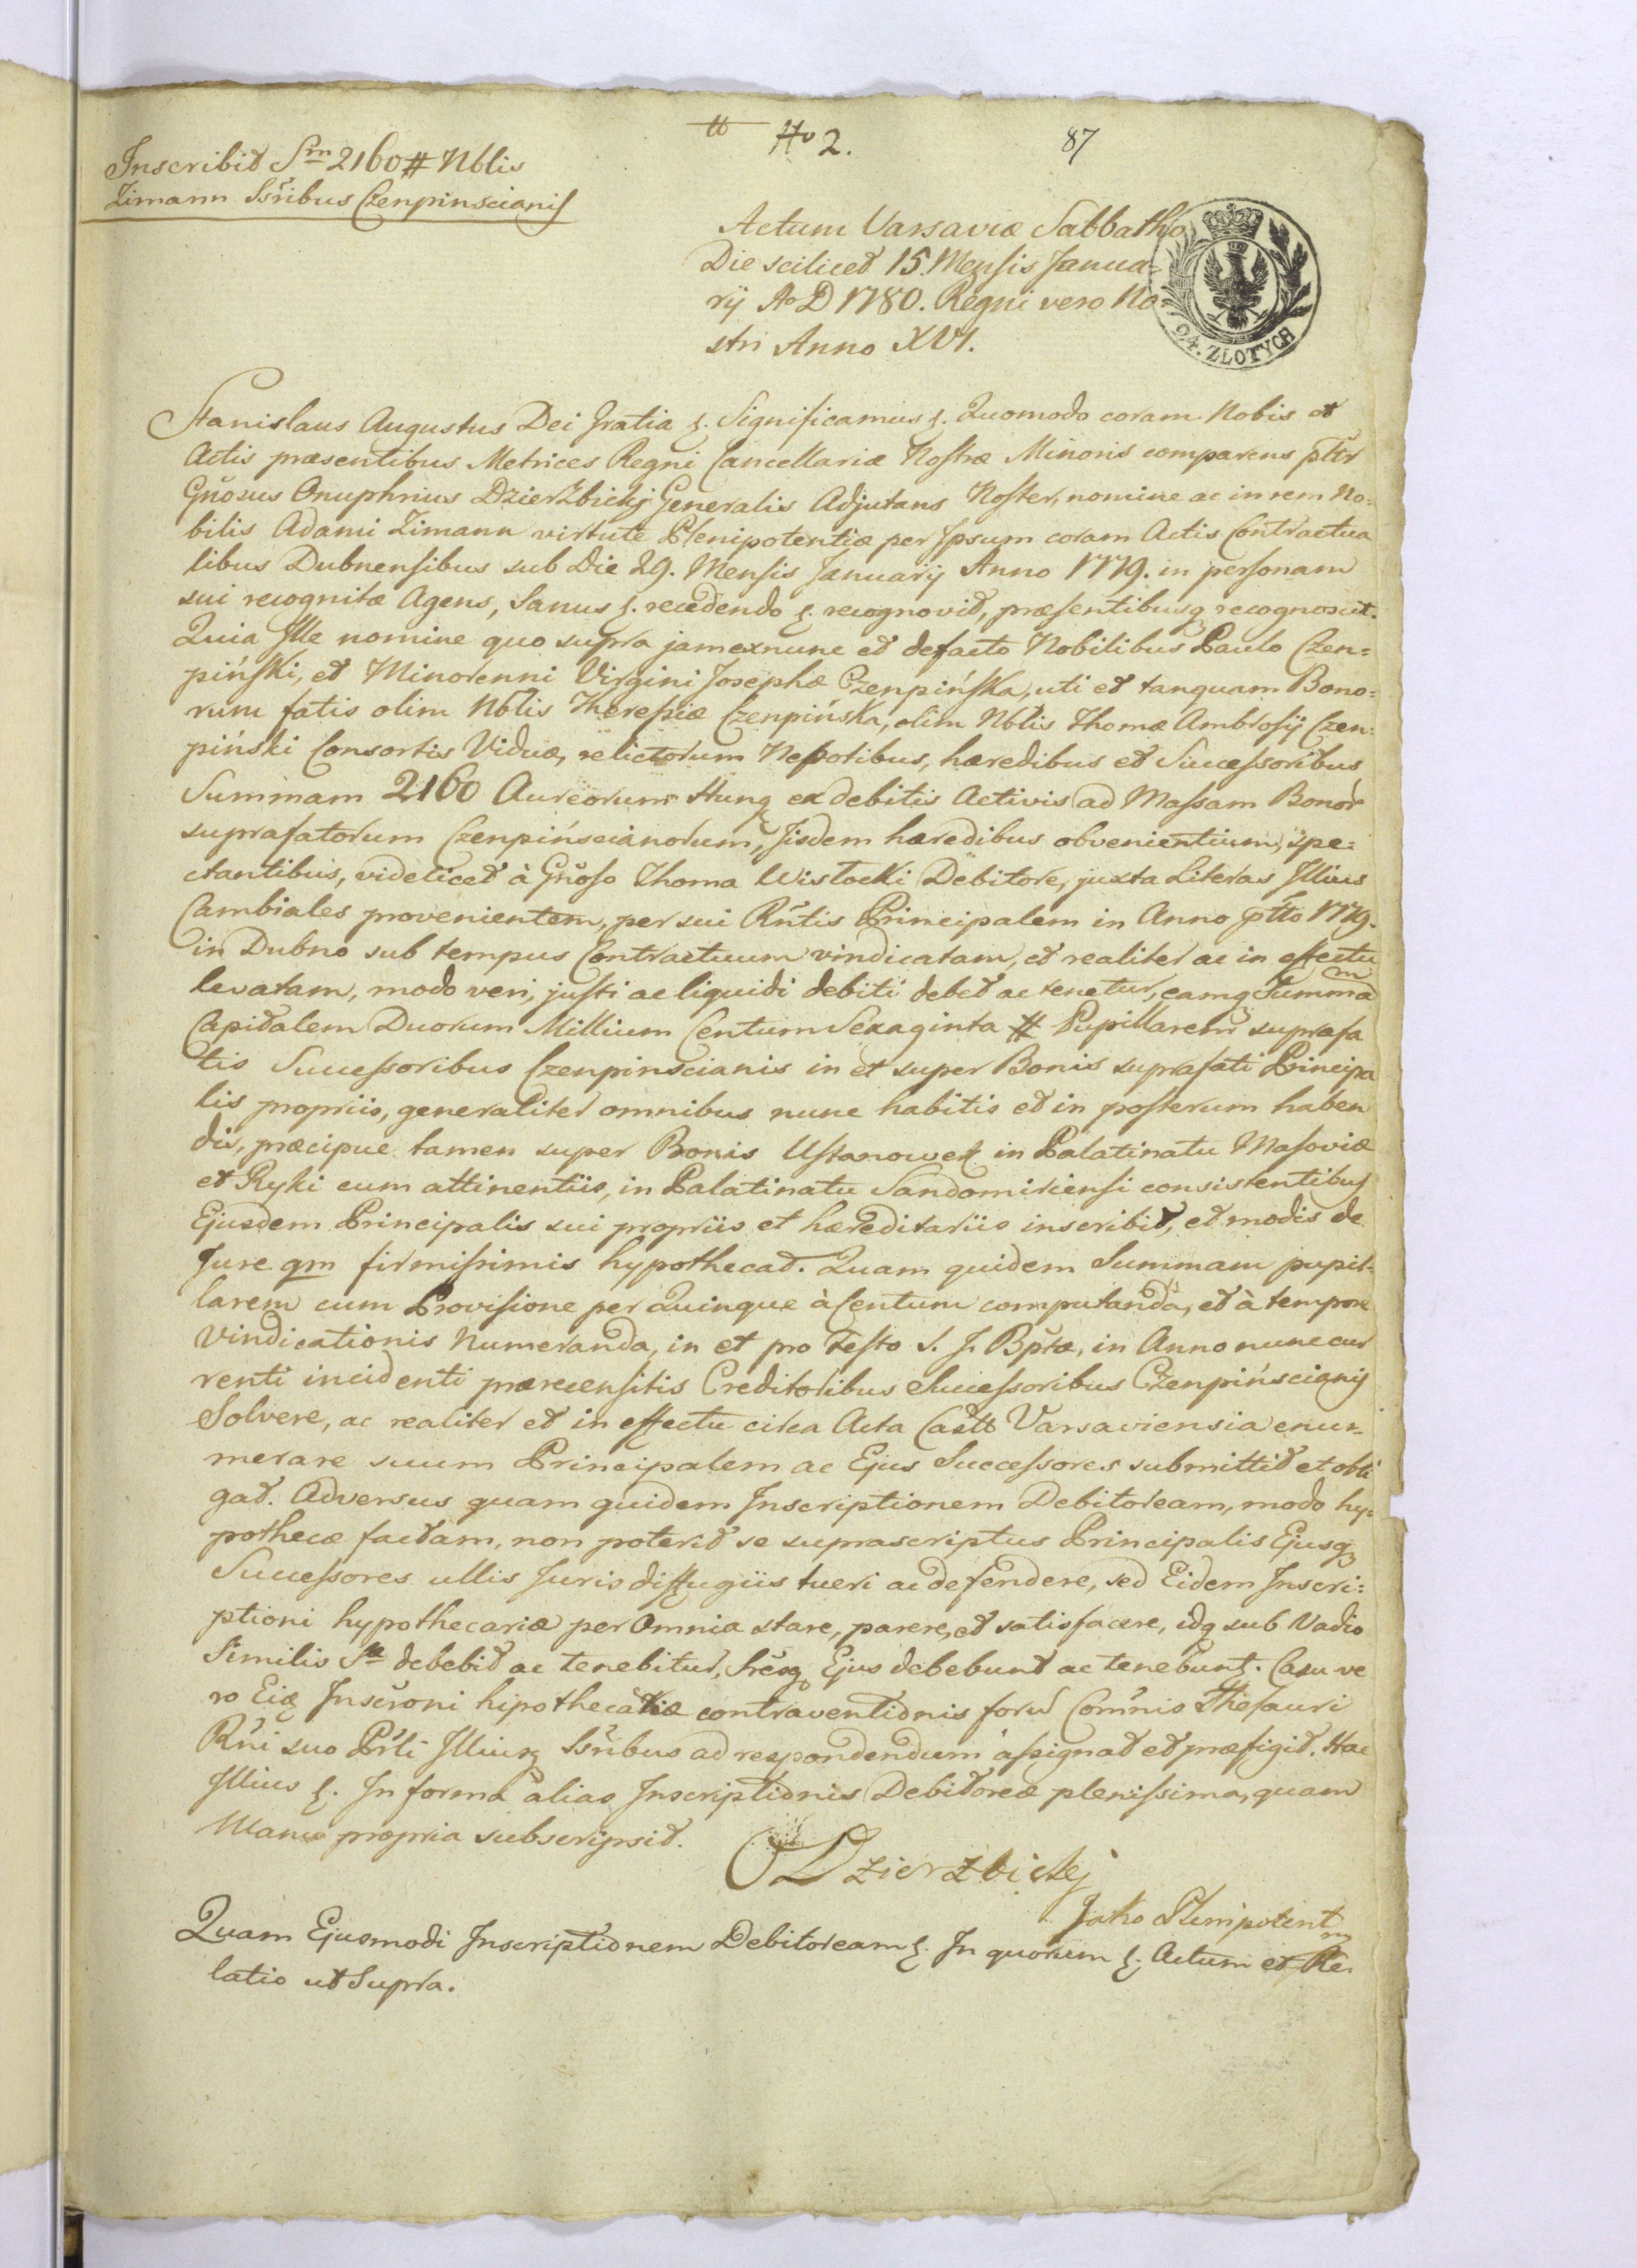 No 2.
87
Inscribit Sm 2160 # Nblis
Zimann Ssribus Czenpinscianis
Actum Varsaviæ Sabbatho
Die scilicet 15. Mensis Janua-
rij Ao D 1780. Regni vero No
stri Anno XVI.
24. ZŁOTYCH
Stanislaus Augustus Dei Gratia &. Significamus &. Quomodo coram Nobis et
Actis præsentibus Metrices Regni Cancellariæ Nostræ Minoris comparens pltr
Gñosus Onuphrius Dzierzbickij Generalis Adjutans Noster, nomine ac in rem No=
bilis Adami Zimann virtute Plenipotentiæ per Ipsum coram Actis Contractua
libus Dubnensibus sub Die 29. Mensis Januarij Anno 1779. in personam
sui recognitæ Agens, Sanus &. recedendo &. recognovit, præsentibusq recognoscit.
Quia Ille nomine quo supra jam exnunc et defacto Nobilibus Paulo Czen=
piński, et Minorenni Virgini Josephæ Czenpińska, uti et tanquam Bono=
rum fatis olim Nblis Theressiæ Czenpińska, olim Nblis Thomæ Ambrosij Czen=
piński Consortis Viduæ, relictorum Nepotibus, hæredibus et Successoribus
Summam 2160 Aureorum Hung ex debitis Activis ad Massam Bonor
suprafatorum Czenpińscianorum, Iisdem hæredibus obvenientium, spe=
ctantibus, videlicet à Gñoso Thoma Wistocki Debitore, juxta Literas Illius
Cambiales provenientem, per sui Rñtis Principalem in Anno ptto 1779.
in Dubno sub tempus Contractuum vindicatam, et realiter ac in effectu
levatam, modo veri, justi ac liquidi debiti debet ac tenetur, eamq Summam
Capitalem Duorum Millium Centum Sexaginta # Pupillarem suprafa
tis Successoribus Czenpinscianis in et super Bonis suprafati Principa
lis propriis, generaliter omnibus nunc habitis et in posterum haben
dis, præcipue tamen super Bonis Ustanowek in Palatinatu Masoviæ
et Ryki cum attinentiis, in Palatinatu Sandomiriensi consistentibus
Ejusdem Principalis sui propriis et hæreditariis inscribit, et modis de
Jure qm firmissimis hypothecat. Quam quidem Summam pupil=
larem cum Provisione per Quinque à Centum computanda, et à tempore
Vindicationis Numeranda, in et pro Festo S. J. Bptæ, in Anno nunc cur
renti incidenti præcensitis Creditoribus Successoribus Czenpińscianis
Solvere, ac realiter et in effectu citra Acta Castt Varsaviensia enu=
merare suum Principalem ac Ejus Successores submittit et obli
gat. Adversus quam quidem Inscriptionem Debitoream, modo hy=
pothecæ factam, non poterit se suprascriptus Principalis Ejusq
Successores ullis Juris diffugiis tueri ac defendere, sed Eidem Inscri=
ptioni hypothecariæ per Omnia stare, parere, et satisfacere, idq sub Vadio
Similis Sæ debebit ac tenebitur, Sresq Ejus debebunt ac tenebunt. Casu ve
ro Eiæ Inscroni hipothecariæ contraventionis forũ Comñis Thesauri
Rñi suo Prli Illiusq Ssribus ad respondendum assignat et præfigit. Hac
Illius &. In forma alias Inscriptionis Debitoreæ plenissima, quam
Manu propria subscripsit.
O Dzierzbickij
Jako Plenipotent
Quam Ejusmodi Inscriptionem Debitoream &. In quorum &. Actum et Re.
latio ut Supra.